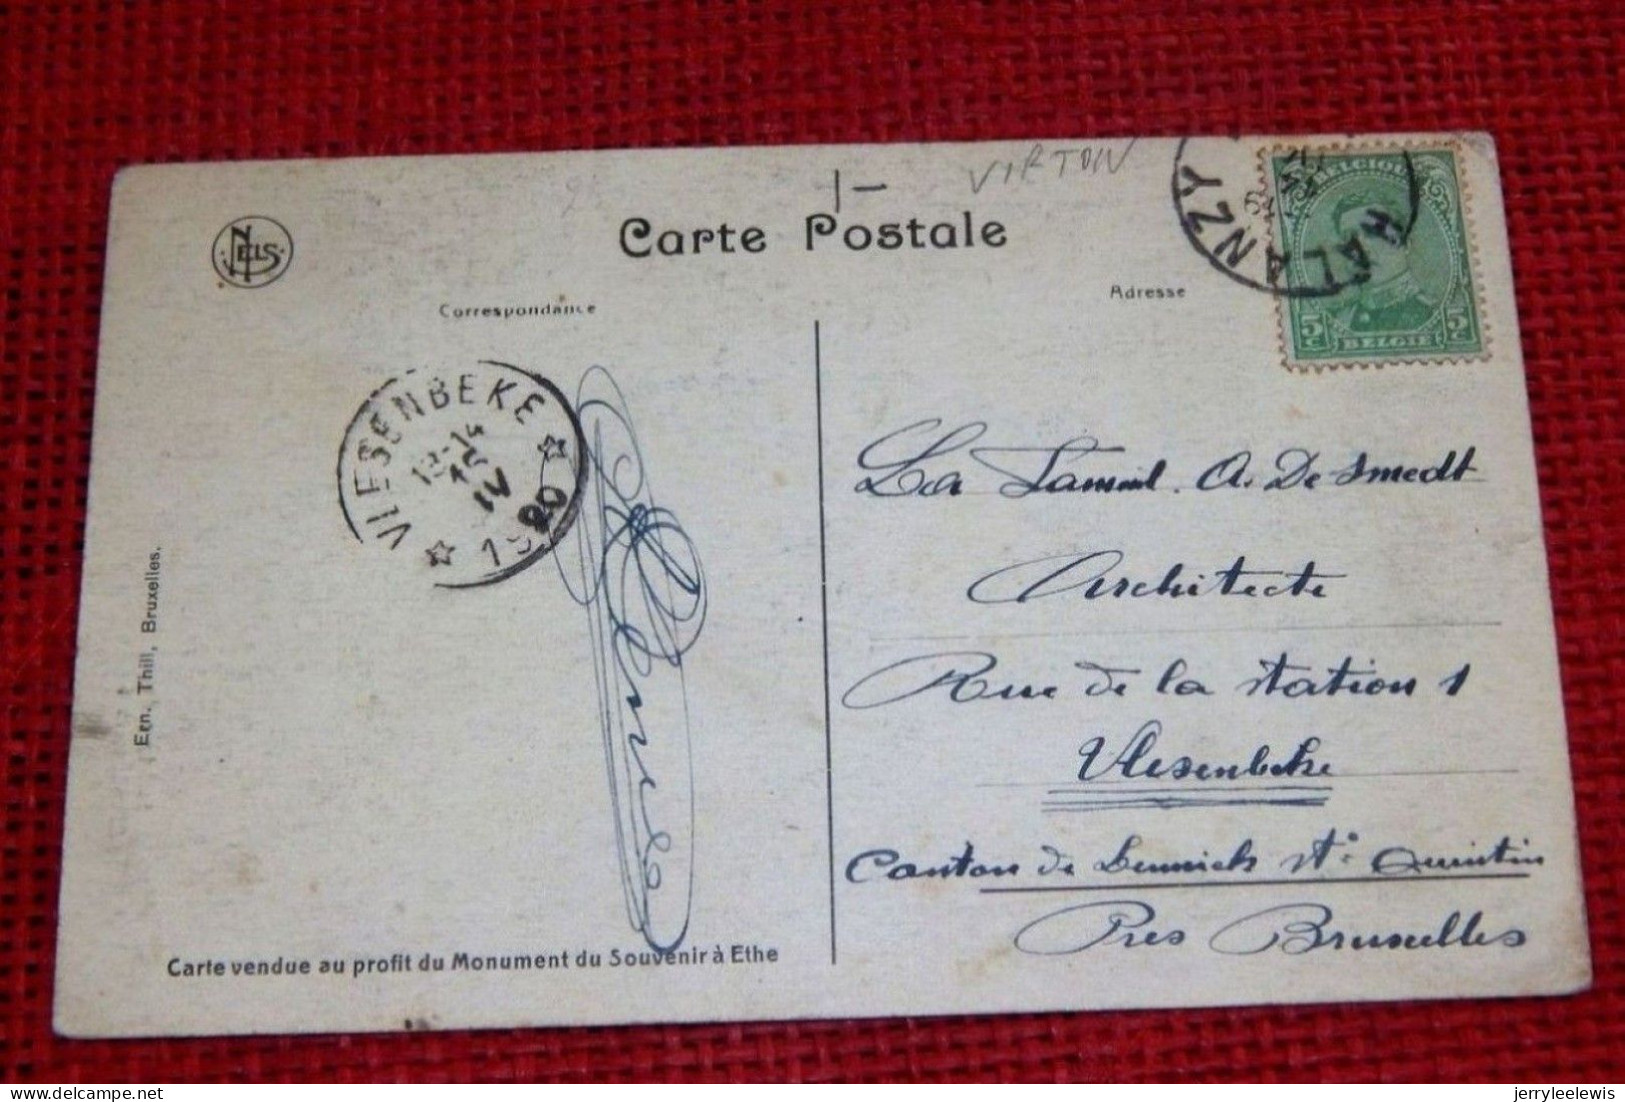 VIRTON
1-
NELS
Carte Postale
Correspondance
Adresse
HALANZY
BELGIQUE
5c BELGIË 5c
VLESENBEKE
13-14
15
IV
1920
La Famil. A. De Smedt
Architecte
Rue de la station 1
Vlesenbeke
Canton de Lennick St. Quintin
Près Bruxelles
Ern. Thill, Bruxelles.
Carte vendue au profit du Monument du Souvenir à Ethe
jerryleelewis